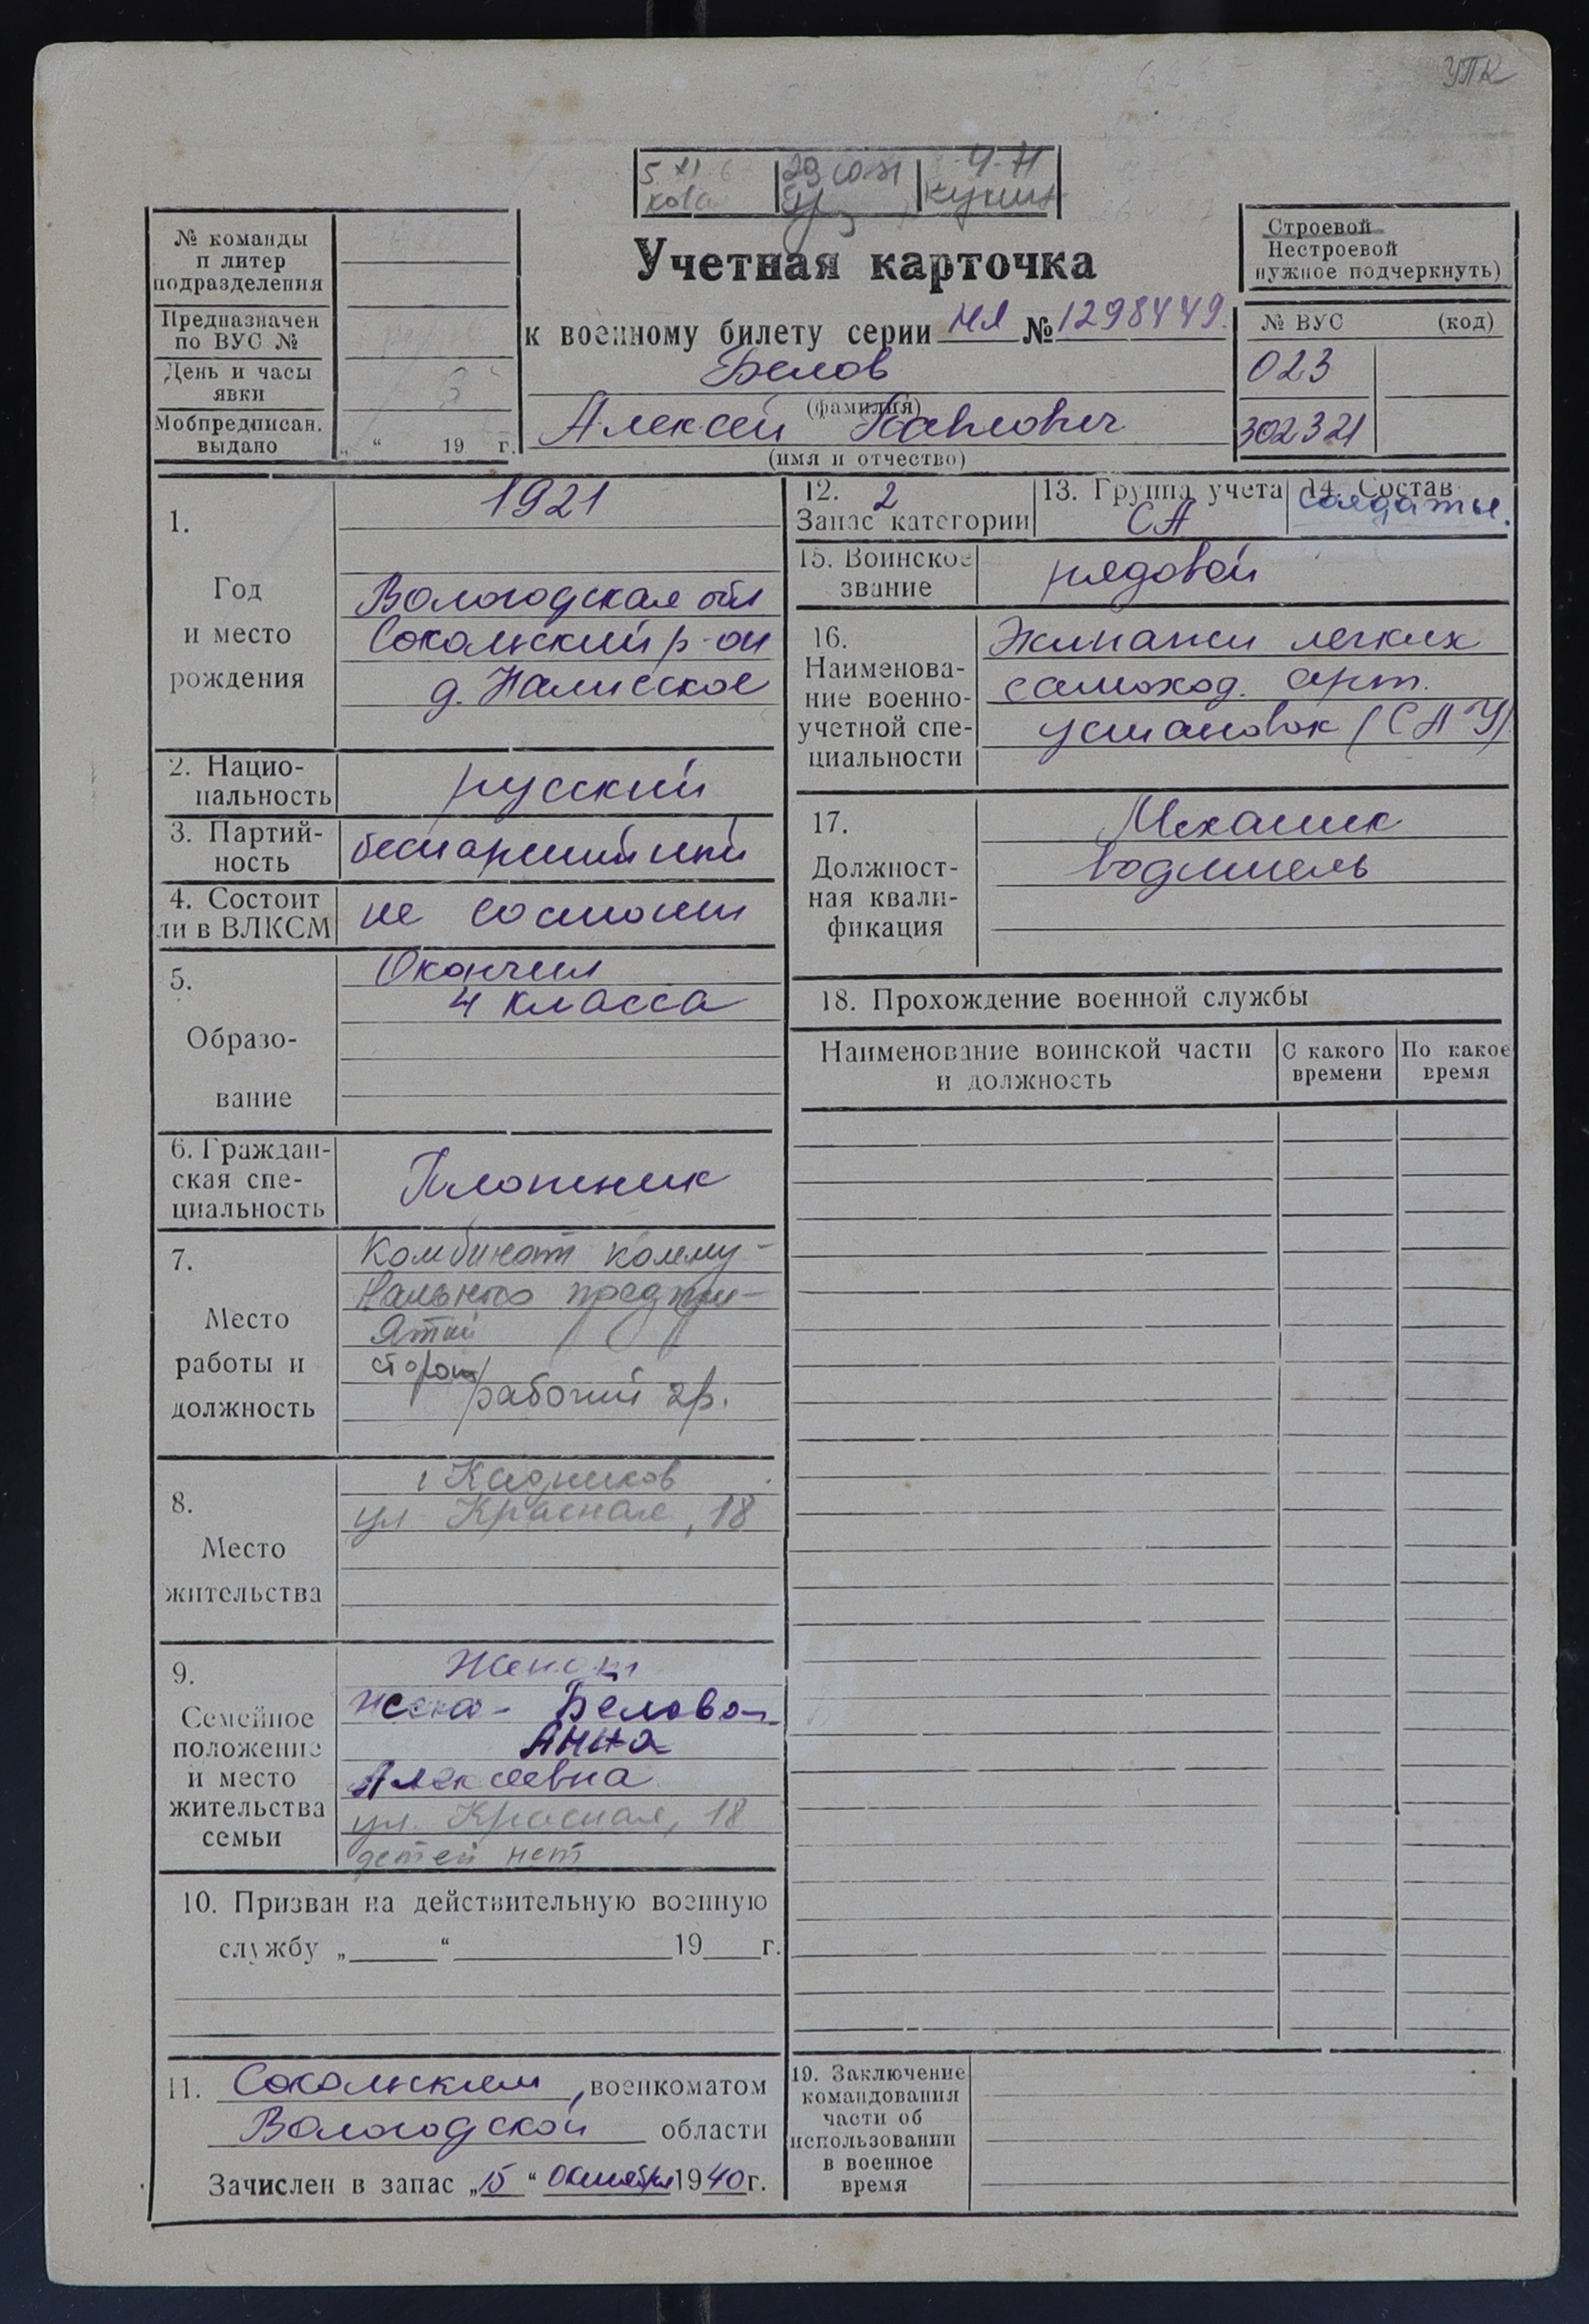 УПК
5 XI 6
29 10 71
4-71
№ команды
п литер
подразделения
Предназначен
по ВУС №
День и часы
явки
Мобпредписан.
выдано
„ “ 19 г.
Учетная карточка
к военному билету серии НЯ № 1298449.
Белов
(фамилия)
Алексей Павлович
(имя и отчество)
Строевой
Нестроевой
нужное подчеркнуть)
№ ВУС (код)
023
302321
1.
Год
и место
рождения
1921
Вологодская обл
Сокольский р-он
д.
2. Нацио-
нальность
русский
3. Партий-
ность
беспартийный
4. Состоит
ли в ВЛКСМ
не состоит
5.
Образо-
вание
Окончил
4 класса
6. Граждан-
ская спе-
циальность
Плотник
7.
Место
работы и
должность
Комбинат комму-
нальных предпри-
ятий
сторож
рабочий 2р.
8.
Место
жительства
г Кадников
ул Красная, 18
9.
Семейное
положение
и место
жительства
семьи
Женат
жена - Белова
Анна
Алексеевна
ул. Красная, 18
детей нет
10. Призван на действительную военную
службу „ “ 19 г.
11. Сокольским, военкоматом
Вологодской области
Зачислен в запас „15“ Октября 1940г.
12. 2
Запас категории
13. Группа учета
СА
14. Состав
солдаты.
15. Воинское
звание
рядовой
16.
Наименова-
ние военно-
учетной спе-
циальности
Экипажи легких
самоход. арт.
установок (САУ)
17.
Должност-
ная квали-
фикация
Механик
водитель
18. Прохождение военной службы
Наименование воинской части
и должность
С какого
времени
По какое
время
19. Заключение
командования
части об
использовании
в военное
время